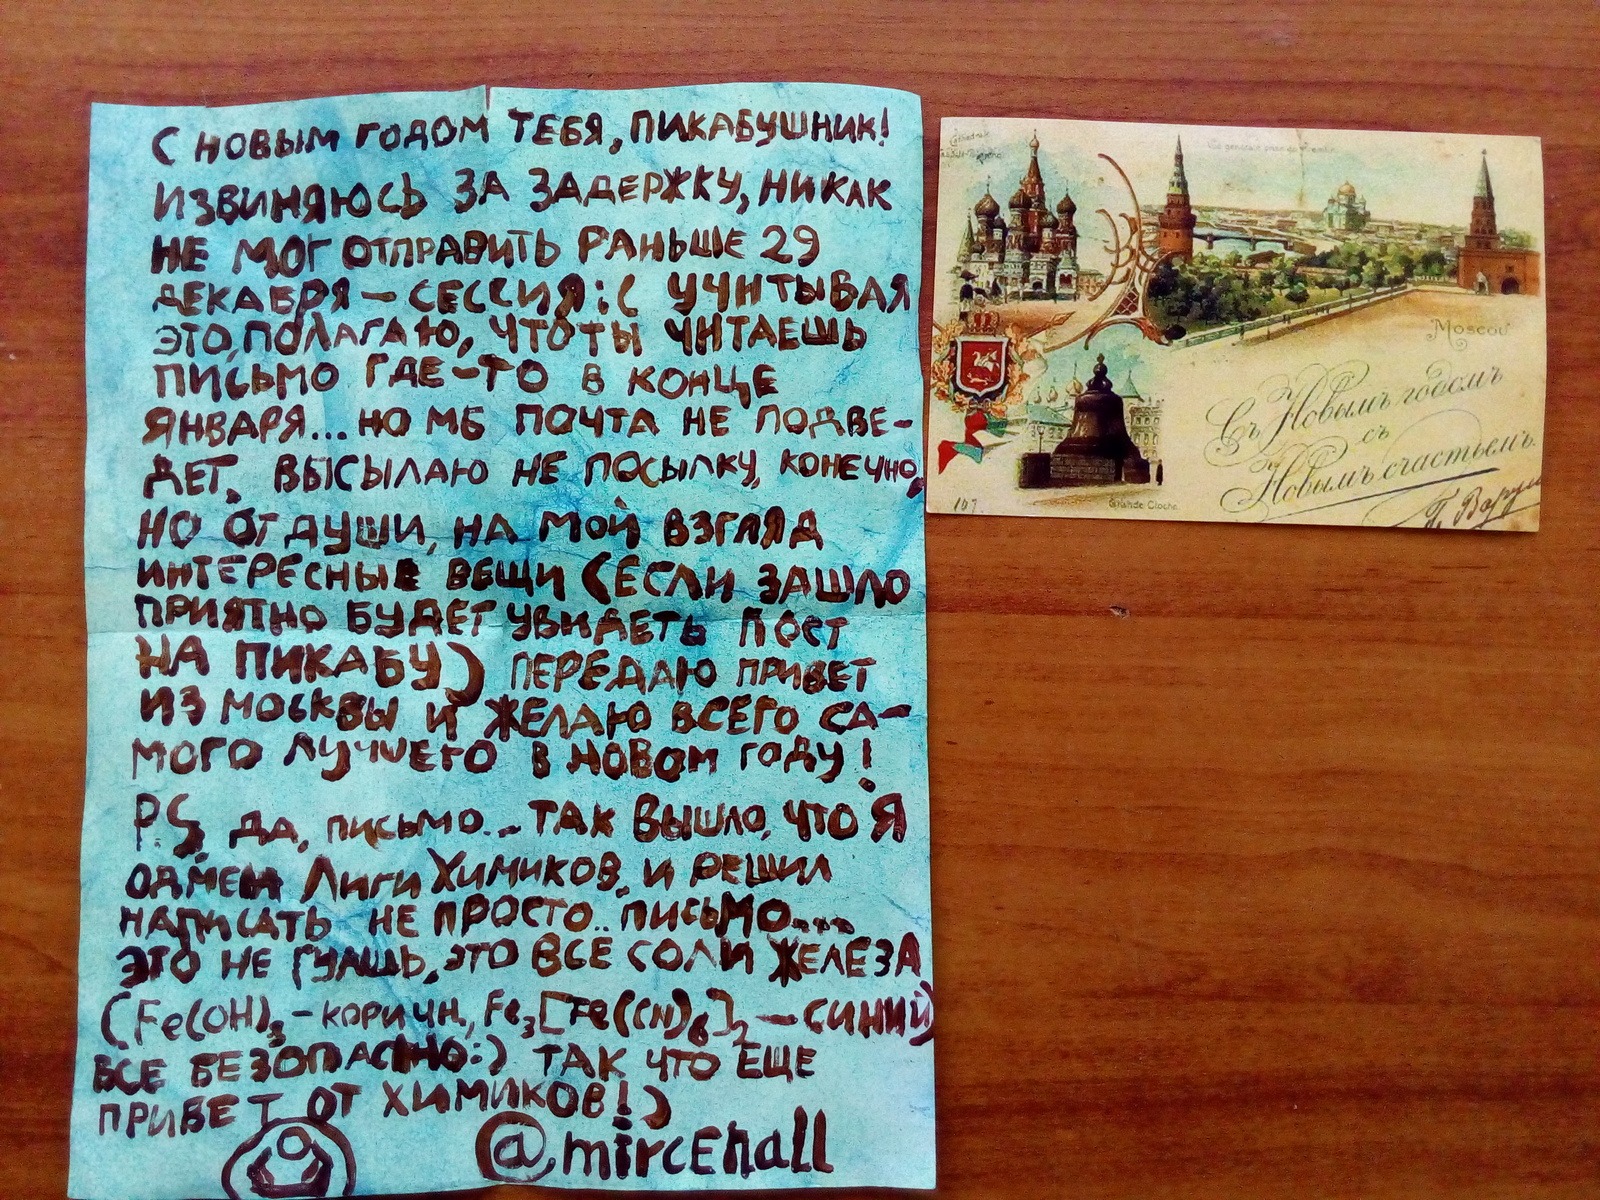 С НОВЫМ ГОДОМ ТЕБЯ, ПИКАБУШНИК!
ИЗВИНЯЮСЬ ЗА ЗАДЕРЖКУ, НИКАК
НЕ МОГ ОТПРАВИТЬ РАНЬШЕ 29
ДЕКАБРЯ – СЕССИЯ :( УЧИТЫВАЯ
ЭТО, ПОЛАГАЮ, ЧТО ТЫ ЧИТАЕШЬ
ПИСЬМО ГДЕ-ТО В КОНЦЕ
ЯНВАРЯ... НО МБ ПОЧТА НЕ ПОДВЕ-
ДЕТ. ВЫСЫЛАЮ НЕ ПОСЫЛКУ, КОНЕЧНО,
НО ОТ ДУШИ, НА МОЙ ВЗГЛЯД
ИНТЕРЕСНЫЕ ВЕЩИ (ЕСЛИ ЗАШЛО
ПРИЯТНО БУДЕТ УВИДЕТЬ ПОСТ
НА ПИКАБУ) ПЕРЕДАЮ ПРИВЕТ
ИЗ МОСКВЫ И ЖЕЛАЮ ВСЕГО СА-
МОГО ЛУЧШЕГО В НОВОМ ГОДУ!
P.S. ДА, ПИСЬМО... ТАК ВЫШЛО, ЧТО Я
ОДМЕН ЛИГИ ХИМИКОВ, И РЕШИЛ
НАПИСАТЬ НЕ ПРОСТО.. ПИСЬМО....
ЭТО НЕ ГУАШЬ, ЭТО ВСЕ СОЛИ ЖЕЛЕЗА
(Fe(OH)3 – КОРИЧН., Fe3[Fe(CN)6]2 – СИНИЙ)
ВСЕ БЕЗОПАСНО :) ТАК ЧТО ЕЩЕ
ПРИВЕТ ОТ ХИМИКОВ! )
@mircEnall
Cathédrale
Vue générale prise du Kremlin.
Moscou
Съ Новымъ годомъ
съ
Новымъ счастьемъ.
Grande Cloche.
107.